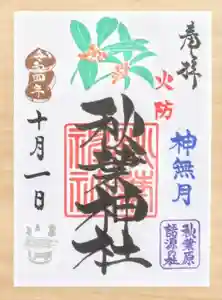 奉拝
火防
神無月
秋葉原
諸源の社
秋葉神社
令和四年
十月一日